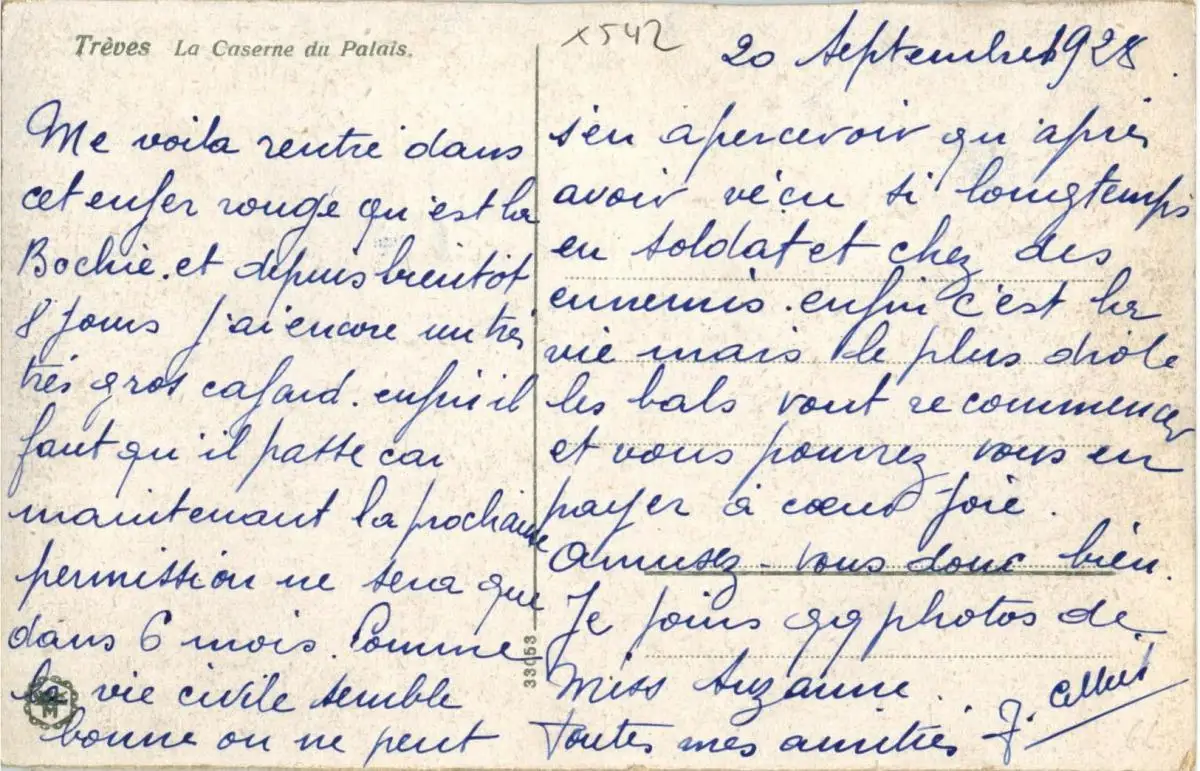 Trèves La Caserne du Palais.
x542
20 Septembre 1928.
Me voila rentré dans
cet enfer rouge qu'est la
Bochie. et depuis bientôt
8 jours j'ai encore un très
très gros cafard. enfin il
faut qu'il passe car
maintenant la prochaine
permission ne sera que
dans 6 mois. Comme
la vie civile semble
bonne on ne peut
s'en apercevoir qu'après
avoir vécu si longtemps
en soldat et chez des
ennemis. enfin c'est la
vie mais le plus drole
les bals vont recommencer
et vous pourrez vous en
payer à cœur joie.
Amusez-vous donc bien.
Je joins qq photos de
Miss Suzanne.
Toutes mes amitiés J.
33053
M